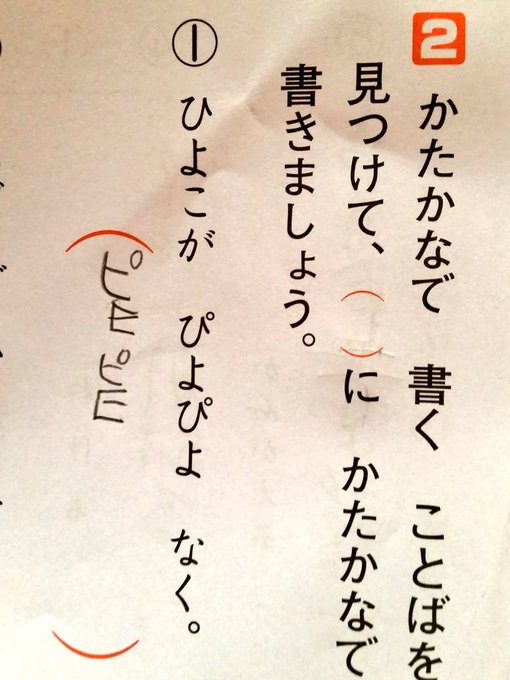 2 かたかなで 書く ことばを
見つけて、( )に かたかなで
書きましょう。
① ひよこが ぴよぴよ なく。
(ピヨピヨ)